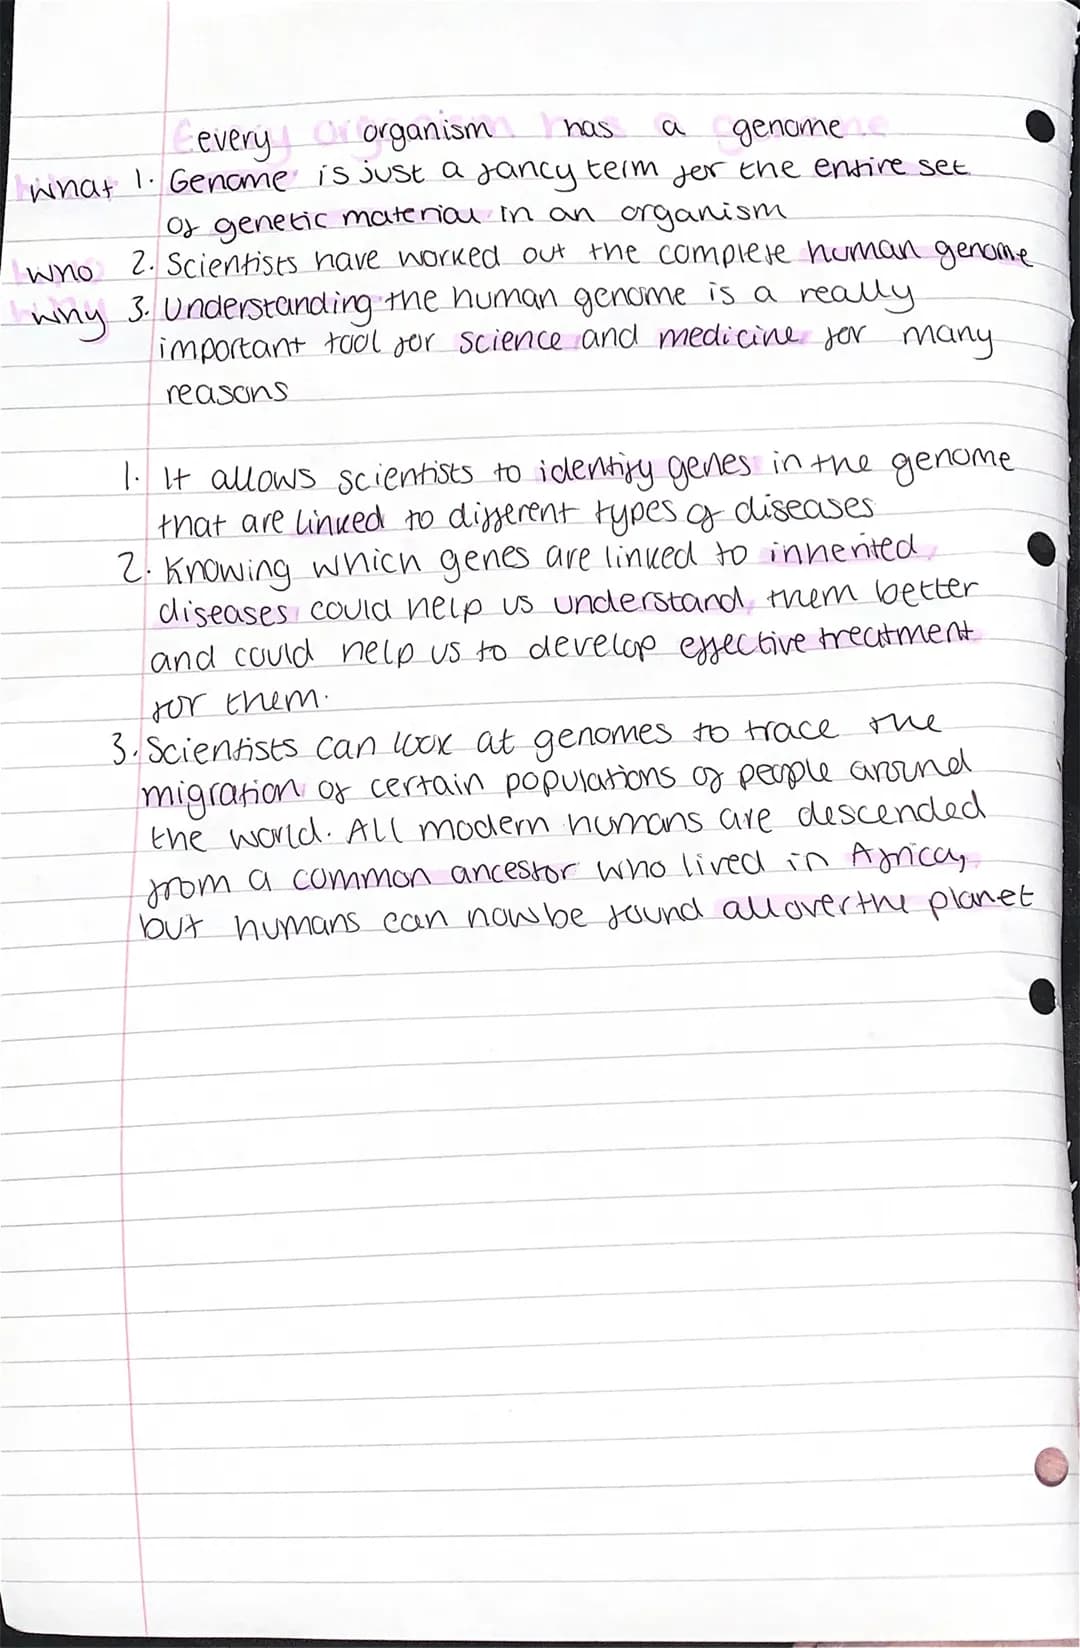 every organism has a genome
what 1. Genome is just a fancy term for the entire set
of genetic material in an organism
who 2. Scientists have worked out the complete human genome
why 3. Understanding the human genome is a really
important tool for science and medicine for many
reasons
1. It allows scientists to identify genes in the genome
that are linked to different types of diseases
2. Knowing which genes are linked to inherited
diseases could help us understand them better
and could help us to develop effective treatment
for them.
3. Scientists can look at genomes to trace the
migration of certain populations of people around
the world. All modern humans are descended
from a common ancestor who lived in Africa,
but humans can now be found all over the planet